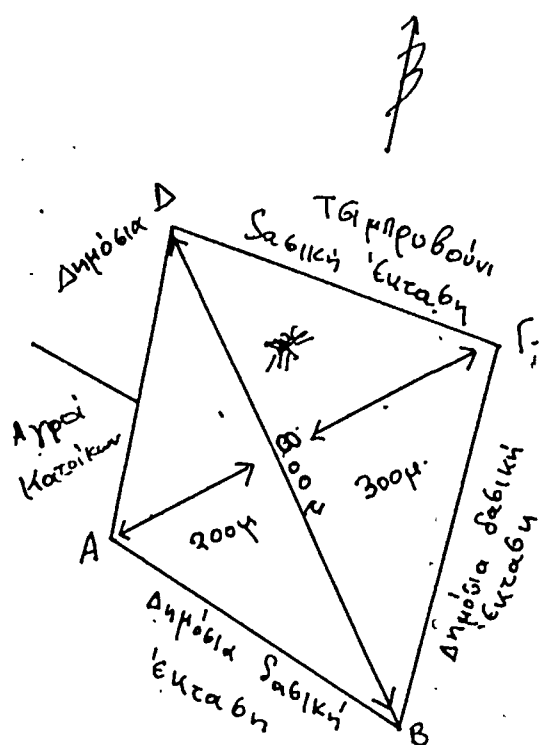 Δημόσια
Δ
Τσιμπρυβούνι
δασική
Έκταση
Γ
Αγροί
Κατοίκων
300μ.
200μ
Α
Δημόσια δασική
Έκταση
Δημόσια δασική
Έκταση
Β